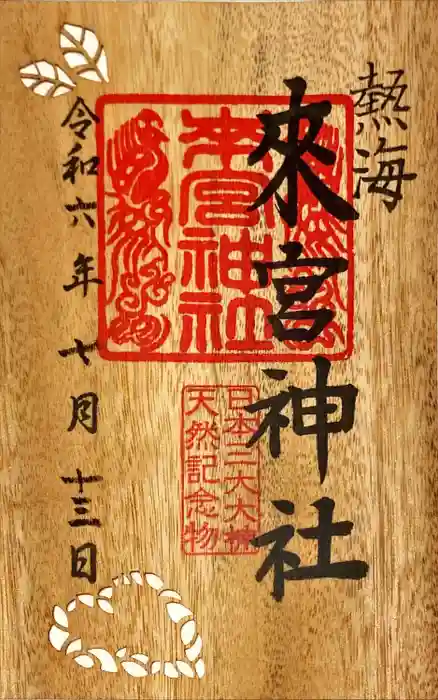 熱海
來宮神社
来宮神社
日本三大大楠
天然記念物
令和六年 七月 十三日